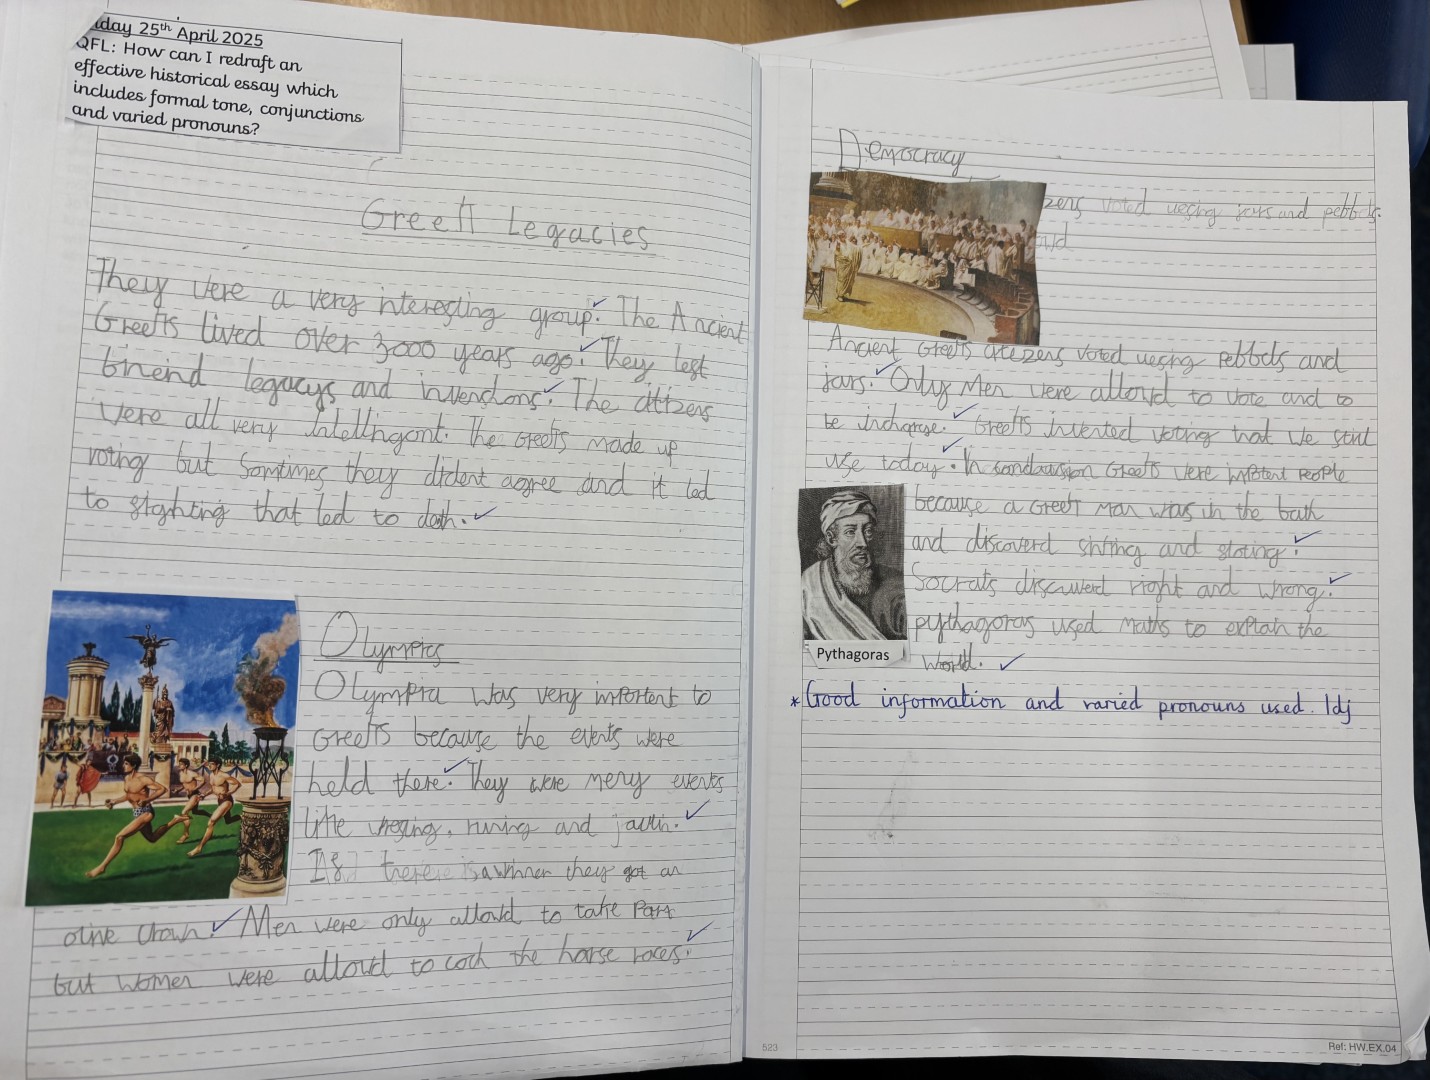 day 25th April 2025
QFL: How can I redraft an
effective historical essay which
includes formal tone, conjunctions
and varied pronouns?
Greek Legacies
They were a very interesting group. The Ancient
Greeks lived over 3000 years ago. They left
behind legacys and invensions. The citizens
were all very intellingent. The Greeks made up
voting but somtimes they dident agree and it led
to fighting that led to death.
Olympics
Olympia was very importent to
Greeks because the events were
held there. They were meny events
like resling, runing and javlin.
If there is a winner they got an
olive crown. Men were only allowd to take part
but women were allowd to coch the horse races.
Democracy
zens voted uesing jars and pebbels.
Ancient Greeks citezens voted uesing pebbels and
jars. Only Men were allowd to vote and to
be incharge. Greeks invented voting that we still
use today. In conclusion Greeks were impotent people
because a Greek man was in the bath
and discoverd sinking and floting.
Socrats discuverd right and wrong.
pythagoras used maths to explain the
world.
Pythagoras
*Good information and varied pronouns used. ldj
523
Ref: HW.EX.04